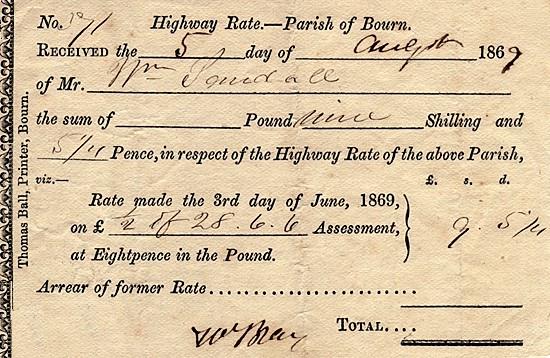 No. 171 Highway Rate.—Parish of Bourn.
RECEIVED the 5 day of Augst 1869
of Mr. Wm
the sum of Pound nine Shilling and
5 1/4 Pence, in respect of the Highway Rate of the above Parish,
viz.— £. s. d.
Rate made the 3rd day of June, 1869,
on £ 1/2 of 28.6.6 Assessment, 9. 5 1/4
at Eightpence in the Pound.
Arrear of former Rate
TOTAL....
Thomas Ball, Printer, Bourn.